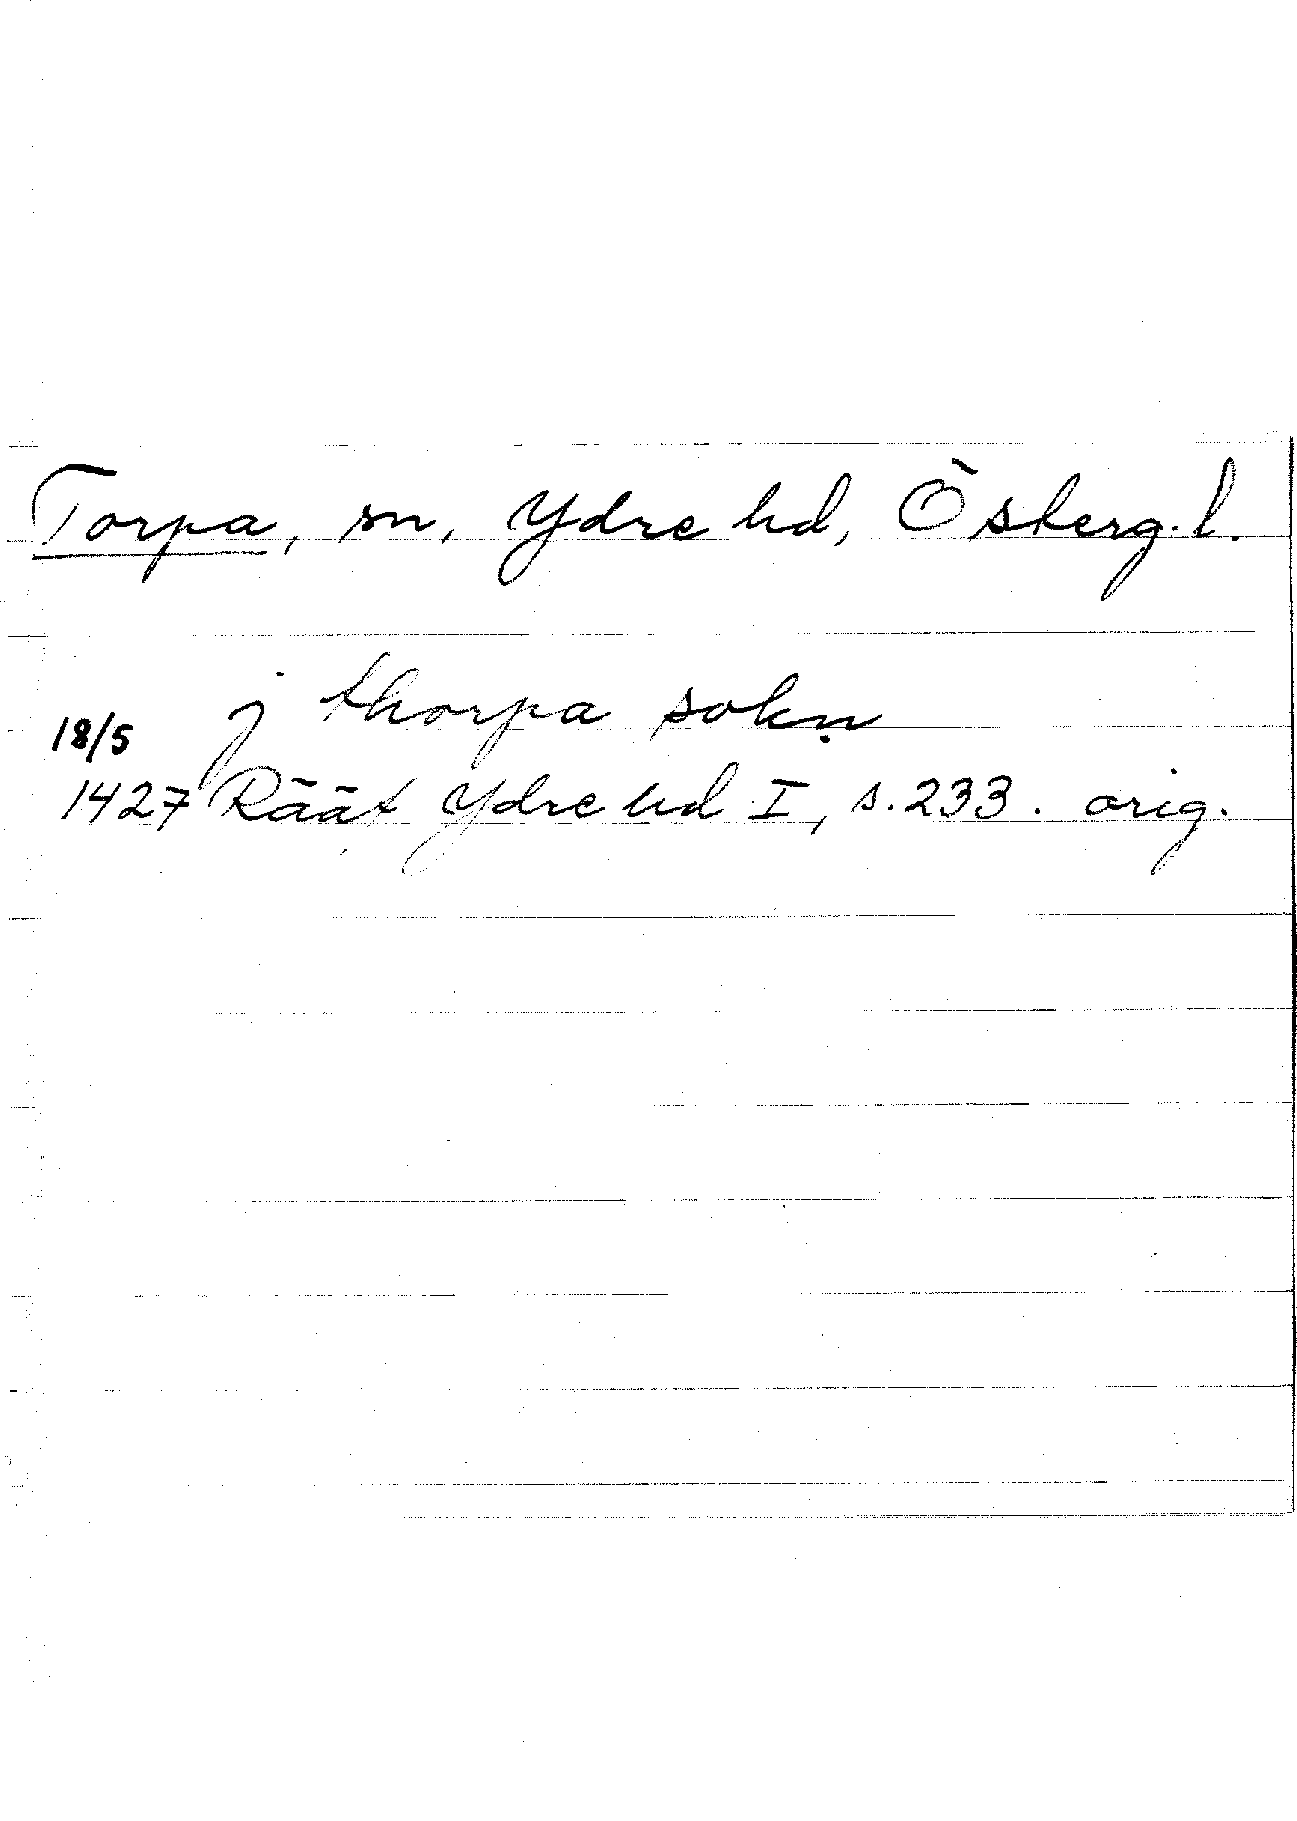 Torpa, sn, Ydre hd, Östergl.
j thorpa sokn
18/5
1427 Rääf Ydre hd I, s. 233. orig.